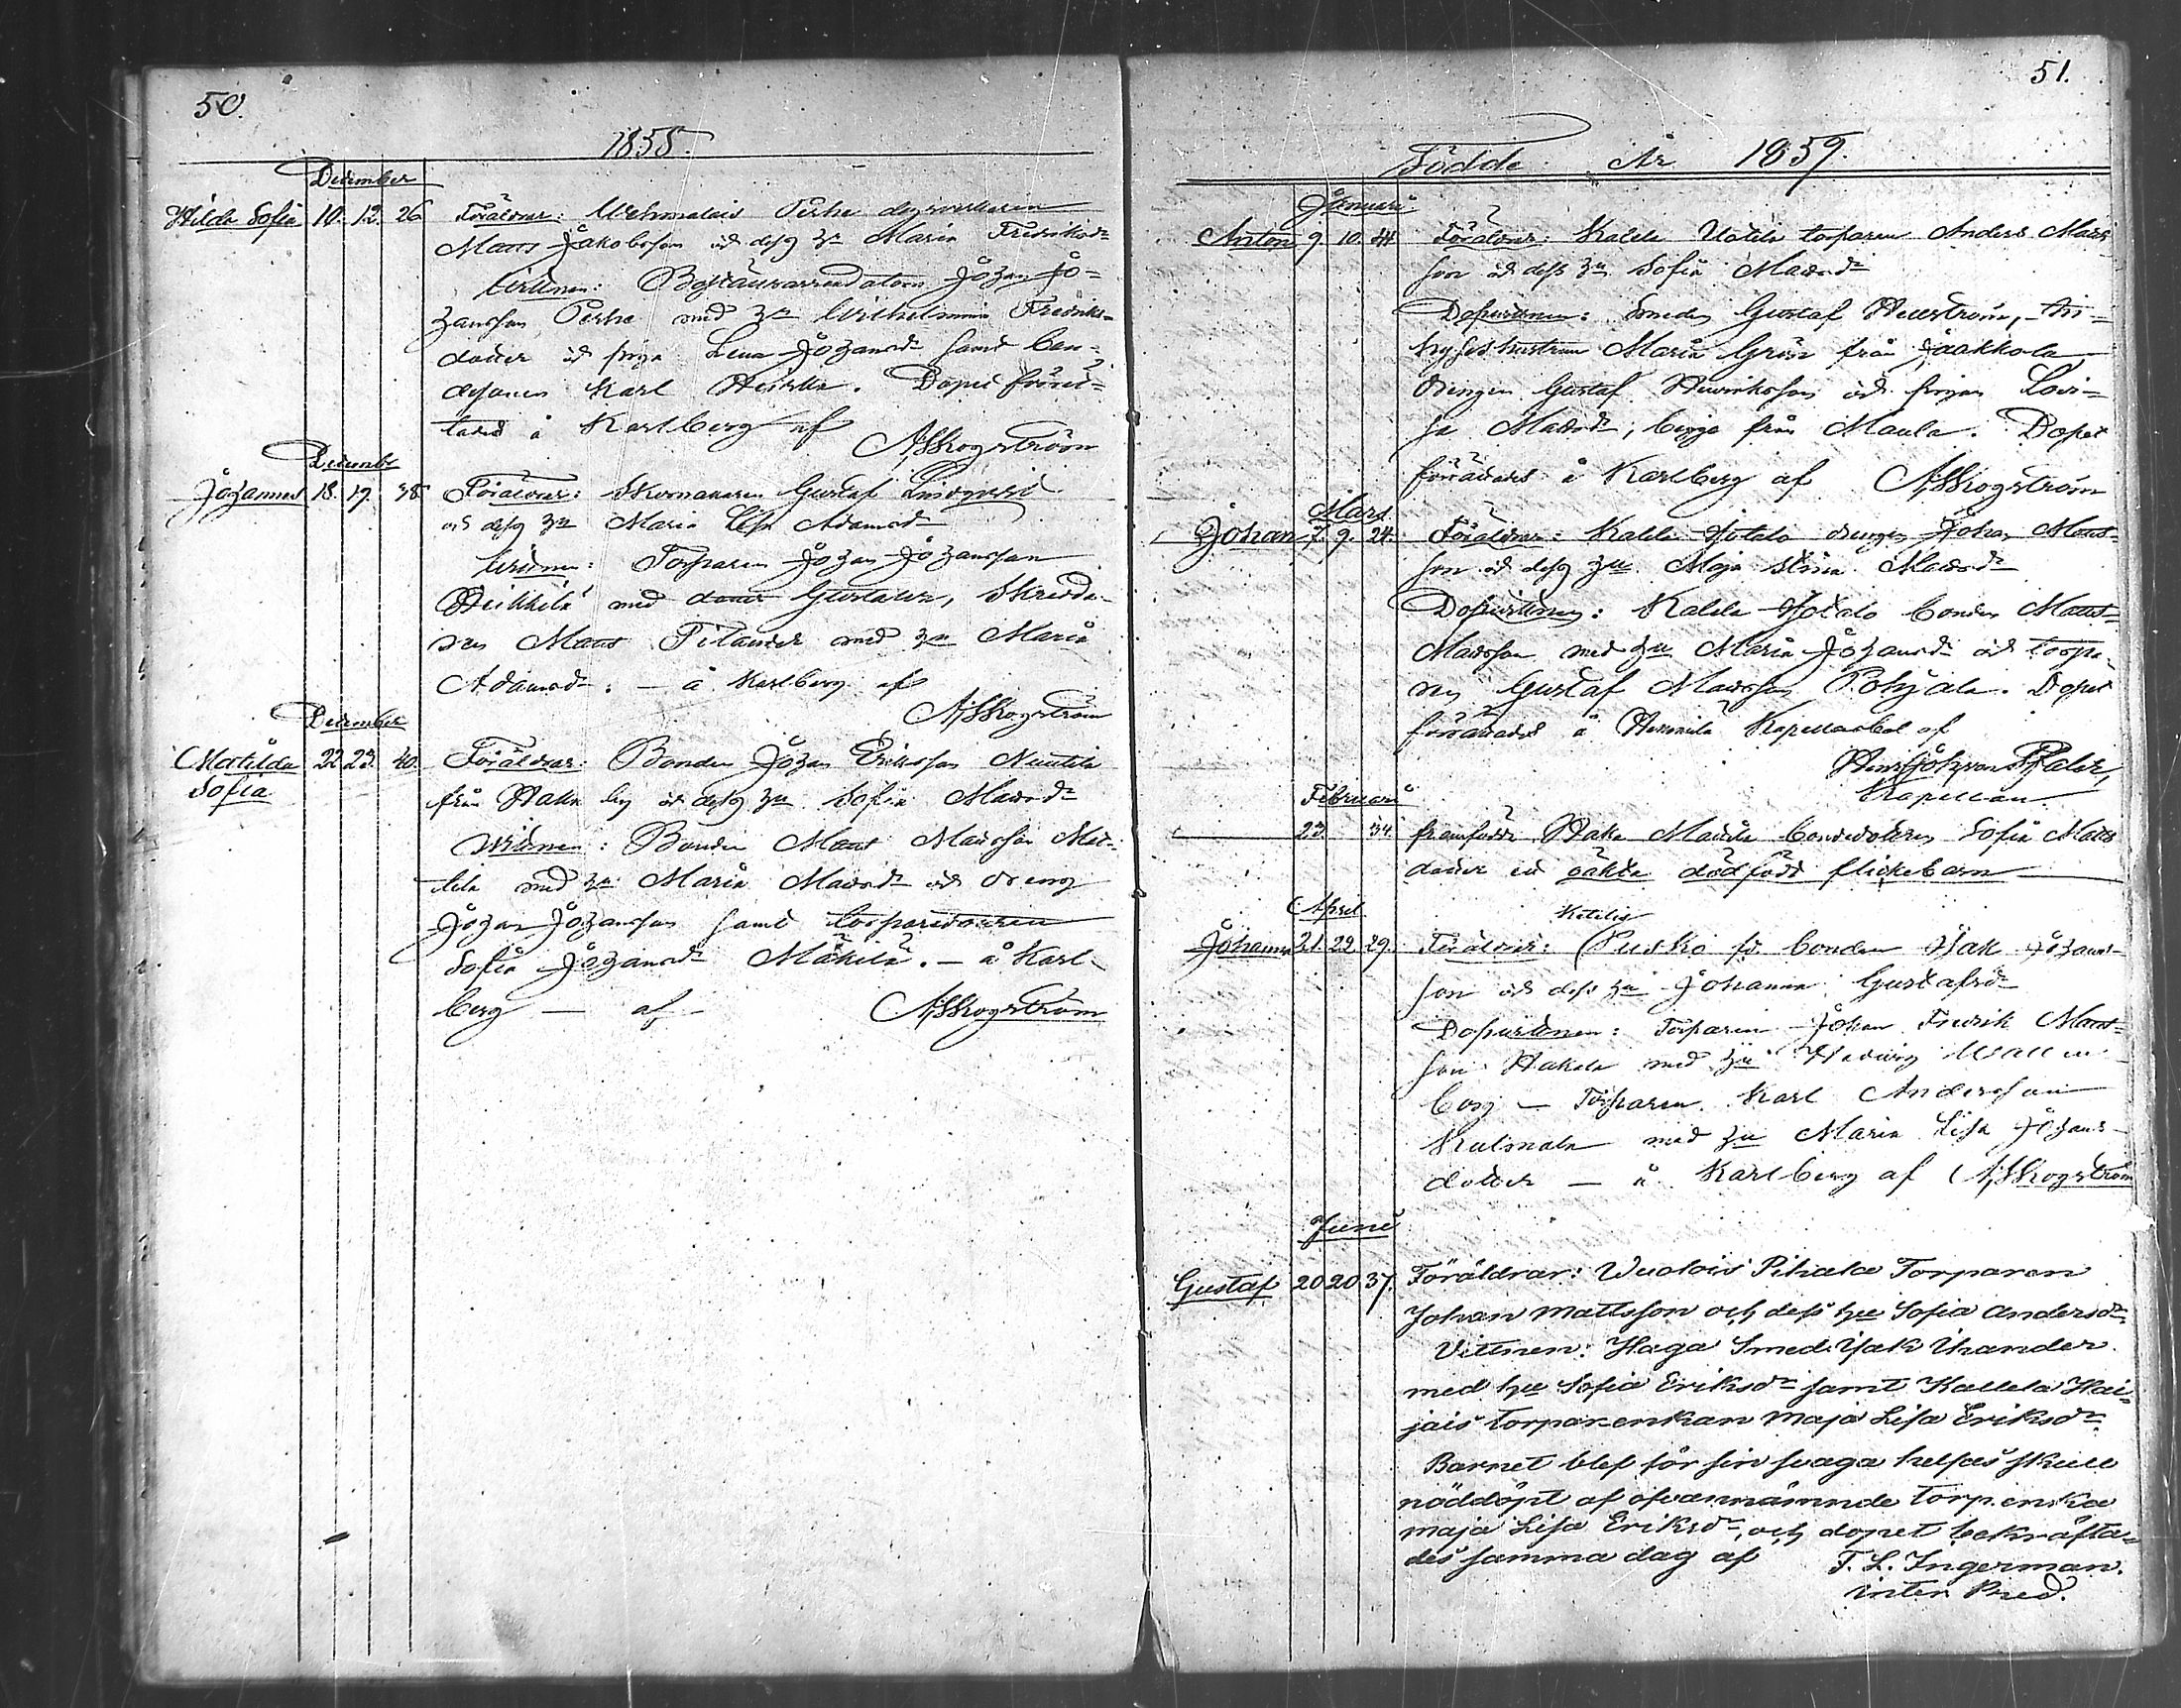 50.
1858.
December
Hilda Sofia 10. 12. 26 Föräldrar: Uschmalais Perhe
Matts Jakobsson och dess hu Maria Fredriksdr
Vittnen: Johan Jo-
hansson Perhe med hu Wilhelmina Fredriks-
dotter och pigan Lena Johansdr samt bon-
desonen Karl Heikkilä. Dopet förrät-
tades å Karlberg af
A. Skogström
December
Johannes 18. 19. 38 Föräldrar: Skomakaren Gustaf Lindqvist
och dess hu Maria Lisa Adamsdr
Vittnen: Torparen Johan Johansson
Heikkilä med Gustafva, Skredda-
ren Matts Filander med hu Maria
Adamsdr. — å Karlberg af
A. Skogström
December
Matilda 22 23. 40. Föräldrar: Bonden Johan Eriksson Nuutila
Sofia
från Haka by och dess hu Sofia Mattsdr
Vittnen: Bonden Matts Mattsson Mat-
tila med hu Maria Mattsdr och dreng
Johan Johansson samt torparedottren
Sofia Johansdr Mäkilä. — å Karl-
berg — af — A. Skogström
51.
Födde År 1859.
Januari
Anton 9. 10. 44 Föräldrar: Kalela Uotila torparen Anders Matts
son och dess hu Sofia Mattsdr
Dopvittnen: Smeden Gustaf Hellström,
hustrun Maria Grön från Jaakkola
drengen Gustaf Henriksson och pigan Lovi-
sa Mattsdr, begge från Maula. Dopet
förrättades å Karlberg af A. Skogström
Mars
Johan 7. 9. 24. Föräldrar: Kalela drengen Johan Matts-
son och dess hu Maja Stina Mattsdr
Dopvittnen: Kalela bonden Matts
Mattsson med hu Maria Johansdr och torpa-
ren Gustaf Mattsson Pohjala. Dopet
förrättades å Kapellansbol af
Kapellan
Februari
23. 34. framfödde Haka Mattila bondedottren Sofia Matts
dotter ett oäkta dödfödt flickebarn
April
Johanna 21. 22. 29. Föräldrar: Puisko fd. bonden Isak Johans-
son och dess hu Johanna Gustafsdr
Dopvittnen: Torparen Johan Fredrik Matts-
son Hakala med hu Hedvig Wallen
berg — Torparen Karl Andersson
Kulmala med hu Maria Lisa Johans-
dotter — å Karlberg af A. Skogström
Juni
Gustaf 20 20 37. Föräldrar: Wuolois Pihala Torparen
Johan Mattsson och dess hu Sofia Andersdr.
Vittnen: Haga Smed Isak Ihander
med hu Sofia Eriksdr samt Kallela Hai-
jais torparenkan Maja Lisa Eriksdr.
Barnet blef för sin svaga helsas skull
nöddöpt af ofvannämnde torp.enka
Maja Lisa Eriksdr, och dopet bekräfta-
des samma dag af F. L. Ingerman.
inter. Pred.